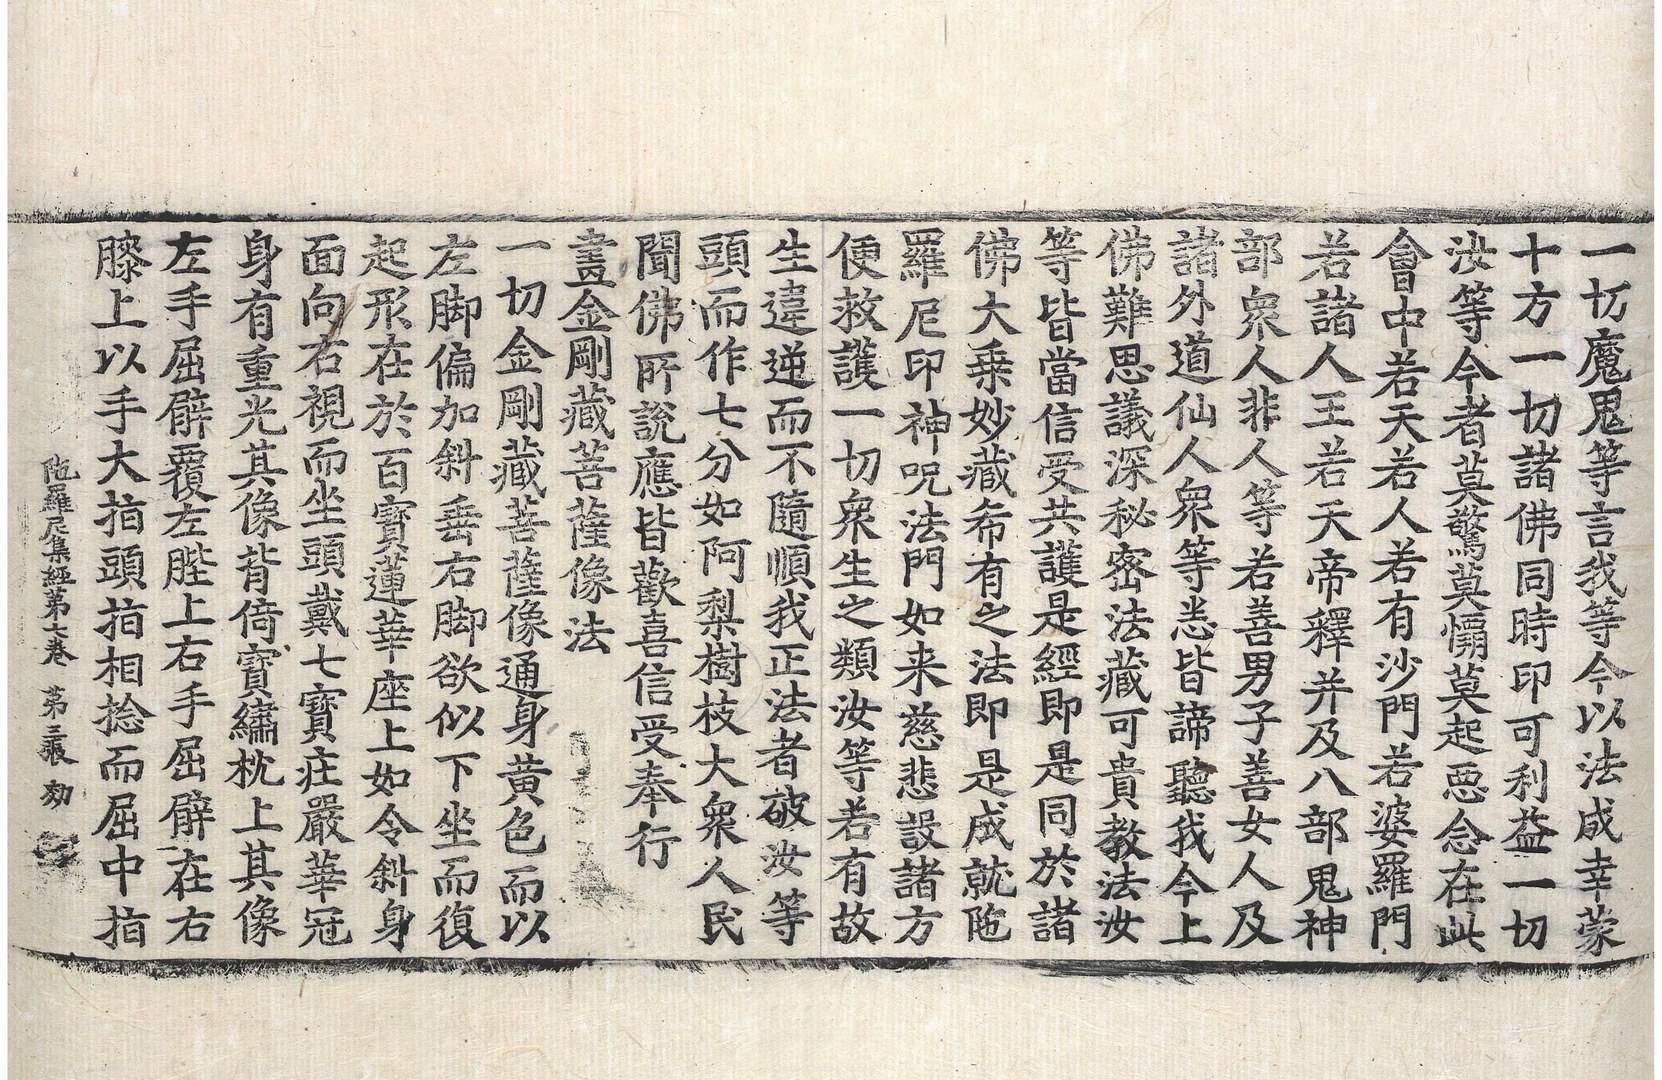 一切魔鬼等言我等今以法成幸蒙
十方一切諸佛同時印可利益一切
汝等今者莫驚莫懼莫起惡念在此
會中若天若人若有沙門若婆羅門
若諸人王若天帝釋并及八部鬼神
部衆人非人等若善男子善女人及
諸外道仙人衆等悉皆諦聽我今上
佛難思議深秘密法藏可貴教法汝
等皆當信受共護是經即是同於諸
佛大乗妙藏希有之法即是成就陁
羅尼印神呪法門如来慈悲設諸方
便救護一切衆生之類汝等若有故
生違逆而不隨順我正法者破汝等
頭而作七分如阿梨樹枝大衆人民
聞佛所說應皆歡喜信受奉行
畫金剛藏菩薩像法
一切金剛藏菩薩像通身黄色而以
左脚偏加斜垂右脚欲似下坐而復
起形在於百寶蓮華座上如令斜身
面向右視而坐頭戴七寶莊嚴華冠
身有重光其像背倚寶繡枕上其像
左手屈臂覆左䏶上右手屈臂在右
膝上以手大指頭指相捻而屈中指
陁羅尼集經第七卷 第三張 効